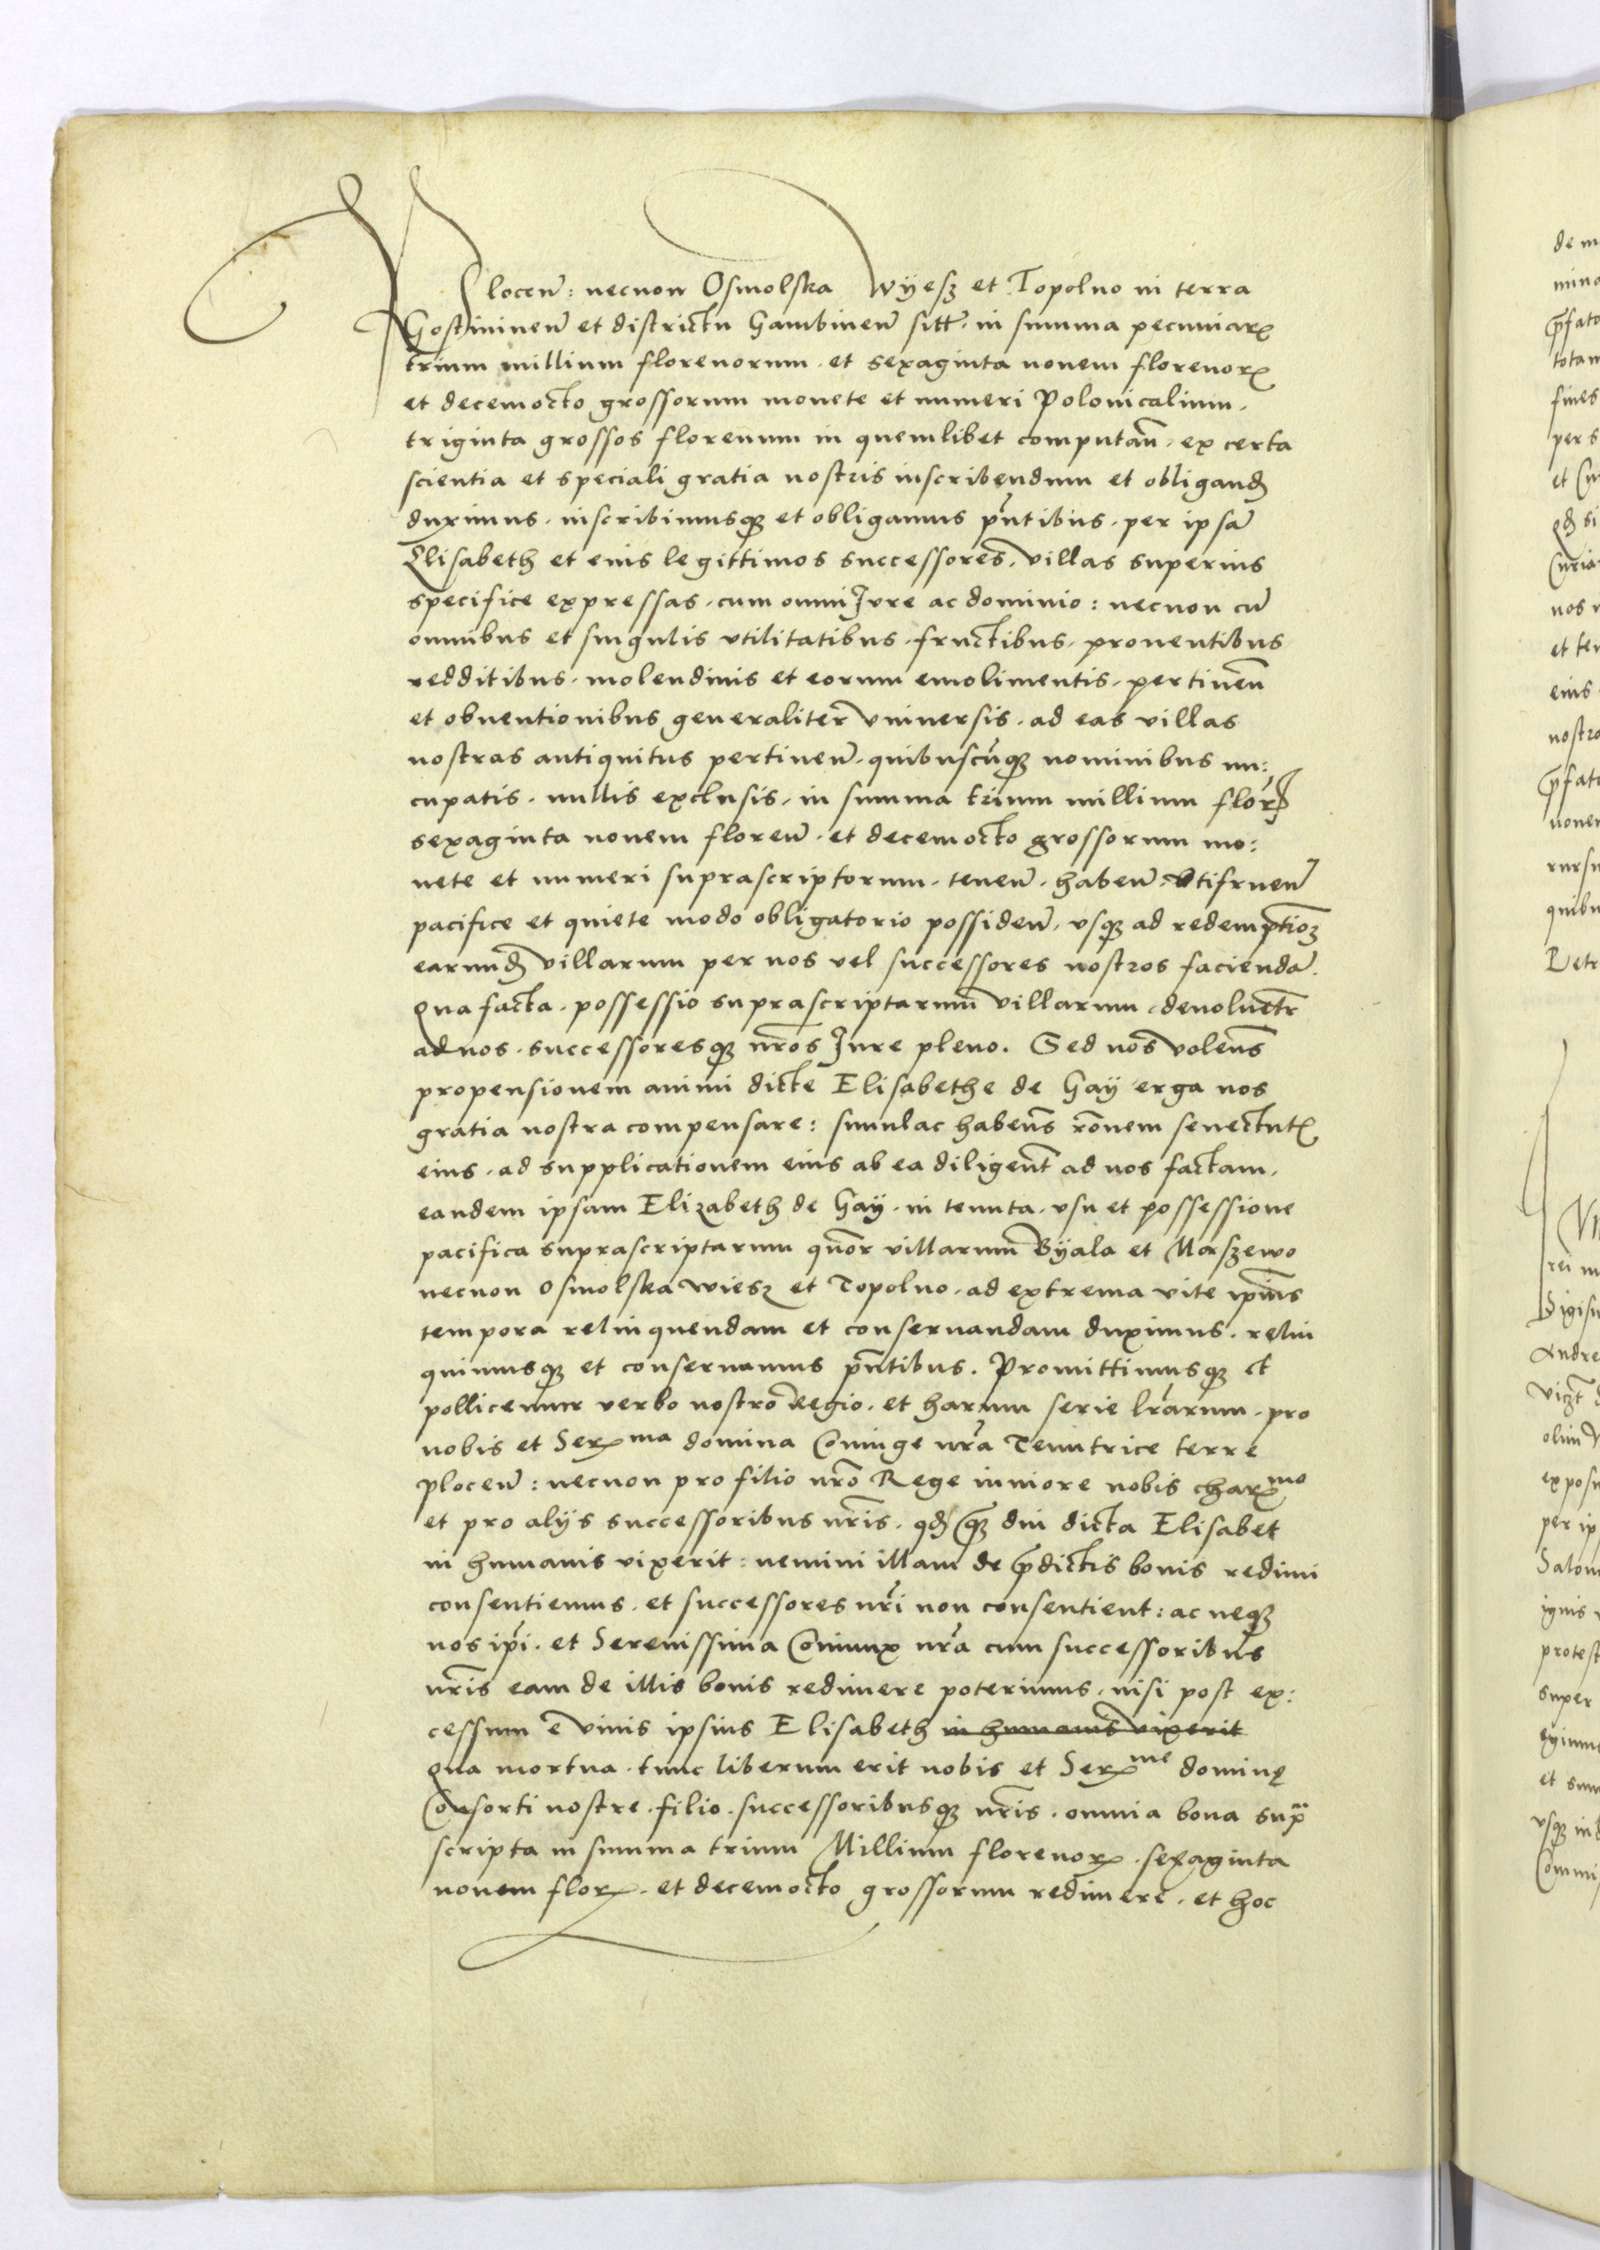 Plocen̄: necnon Osmolska Wÿesz et Topolno in terra
Gostininen̄ et districtu Gambinen̄ sitt̄. in summa pecuniarꝝ
trium millium florenorum. et sexaginta novem florenorꝝ
et decemocto grossorum monete et numeri Polonicalium.
triginta grossos florenum in quemlibet computan̄. ex certa
scientia et speciali gratia nostris inscribendum et obligand̄
duximus. inscribimusqꝫ et obligamus pn̄tibus. per ipsā
Elisabeth et eius legittimos successores. villas superius
specifice expressas. cum omni Jure ac dominio: necnon cū
omnibus et singulis utilitatibus. fructibus. proventibus
redditibus. molendinis et eorum emolimentis. pertinen̄
et obventionibus generaliter universis. ad eas villas
nostras antiquitus pertinen̄. quibuscūqꝫ nominibus nu:
cupatis. nullis exclusis. in summa trium millium florꝝ
sexaginta novem floren̄. et decemocto grossorum mo:
nete et numeri suprascriptorum. tenen̄. haben̄. utifruen̄
pacifice et quiete modo obligatorio possiden̄. usqꝫ ad redemptioꝫ
earund̄ villarum per nos vel successores nostros faciendā.
Qua facta. possessio suprascriptarum villarum. devoluetr̄
ad nos. successoresqꝫ nr̄os Jure pleno. Sed nos volen̄s
propensionem animi dicte Elisabethe de Gaÿ erga nos
gratia nostra compensare: simulac haben̄s rōnem senectutꝭ
eius. ad supplicationem eius ab ea diligen̄t ad nos factam.
eandem ipsam Elizabeth de Gaÿ. in tenuta. usu et possessione
pacifica suprascriptarum qūor villarum Bÿala et Maszewo
necnon Osmolska Wiesz et Topolno. ad extrema vite ipīus
tempora relinquendam et conservandam duximus. relin
quimusqꝫ et conservamus pn̄tibus. Promittimusqꝫ et
pollicemur verbo nostro Regio. et harum serie lr̄arum. pro
nobis et Serᵐᵃ domina Coniuge nr̄a Tenutrice terre
plocen̄: necnon pro filio nr̄o Rege iuniore nobis charᵐᵒ
et pro alÿs successoribus nr̄is. qd̄ qꝫ diu dicta Elisabet
in humanis vixerit: nemini illam de p̄dictis bonis redimi
consentiemus. et successores nr̄i non consentient: ac neqꝫ
nos ip̄i. et Serenissima Coniunx nr̄a cum successoribus
nr̄is eam de illis bonis redimere poterimus. nisi post ex:
cessum e vivis ipsius Elisabeth in humanis vixerit
Qua mortua. tunc liberum erit nobis et Serᵐᵉ dominę
Consorti nostre. filio. successoribusqꝫ nr̄is. omnia bona sup̄
scripta in summa trium Millium florenorꝝ. sexaginta
novem florꝝ. et decemocto grossorum redimere. et hoc